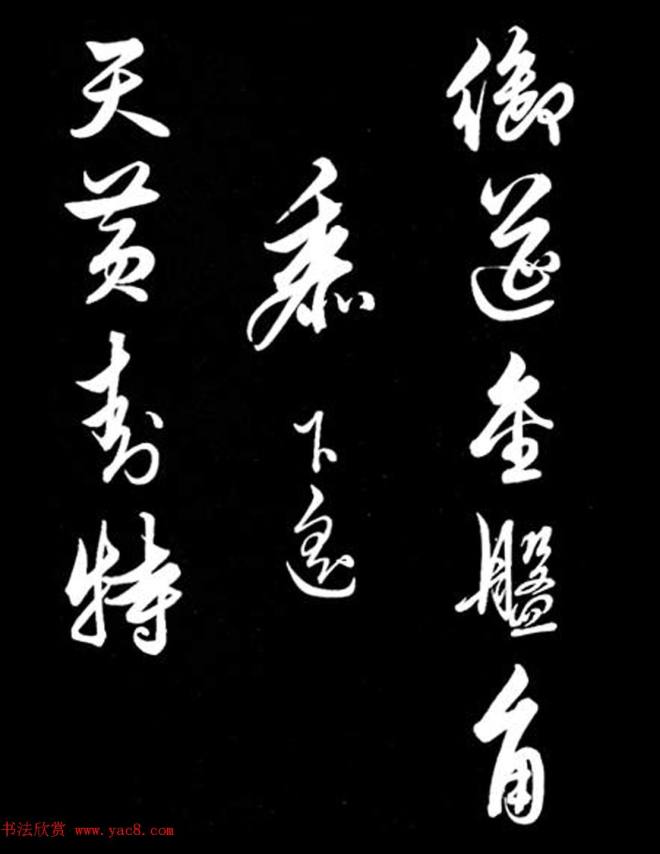 御筵金盤角
黍下遥
天黃封特
书法欣赏 www.yac8.com